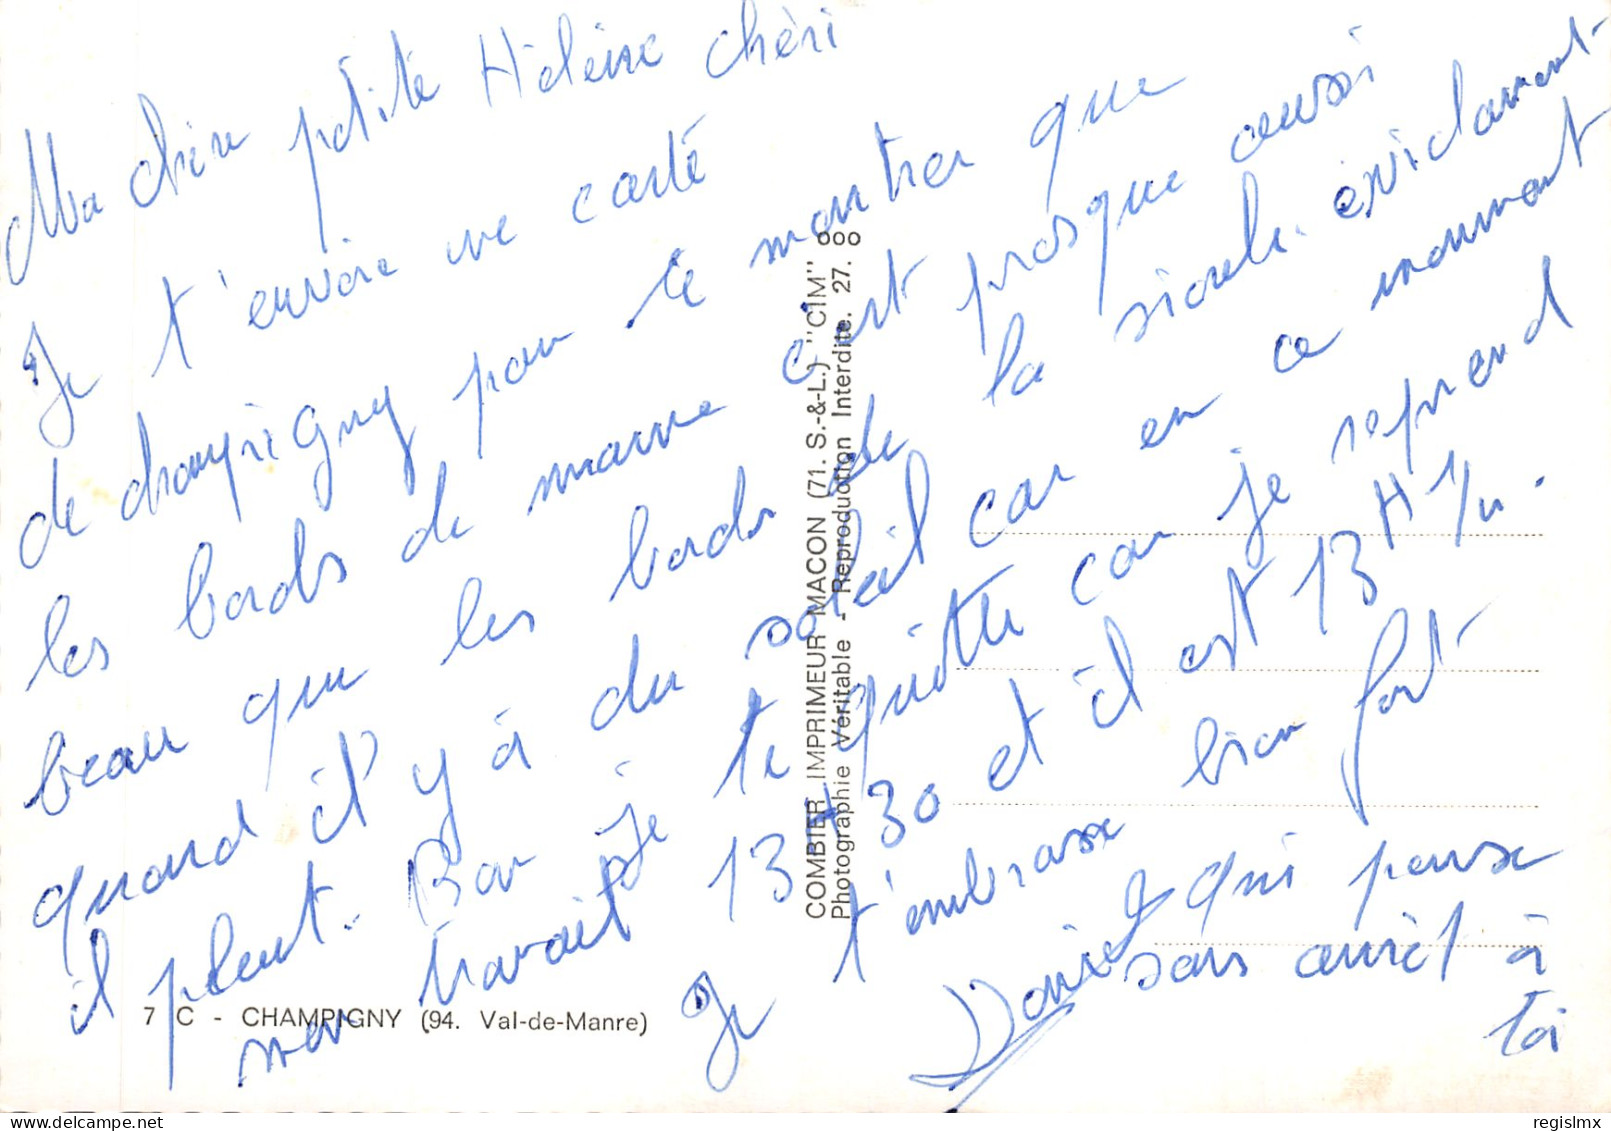 Ma chère petite Hélène chéri
Je t'envoie une carte
de champigny pour te montrer que
les bords de marne c'est presque aussi
beau que les bords de la évidament
quand il y à du soleil car en ce moument
il pleut. Bon je te quitte car je reprend
mon travail 13 H 30 et il est 13 H 1/4.
Je t'embrasse bien fort
Daniel qui pense
sans arrêt à
toi
7 C - CHAMPIGNY (94. Val-de-Manre)
COMBIER IMPRIMEUR MACON (71. S.-&-L.) "CIM"
Photographie Véritable - Reproduction Interdite. 27.
regislmx